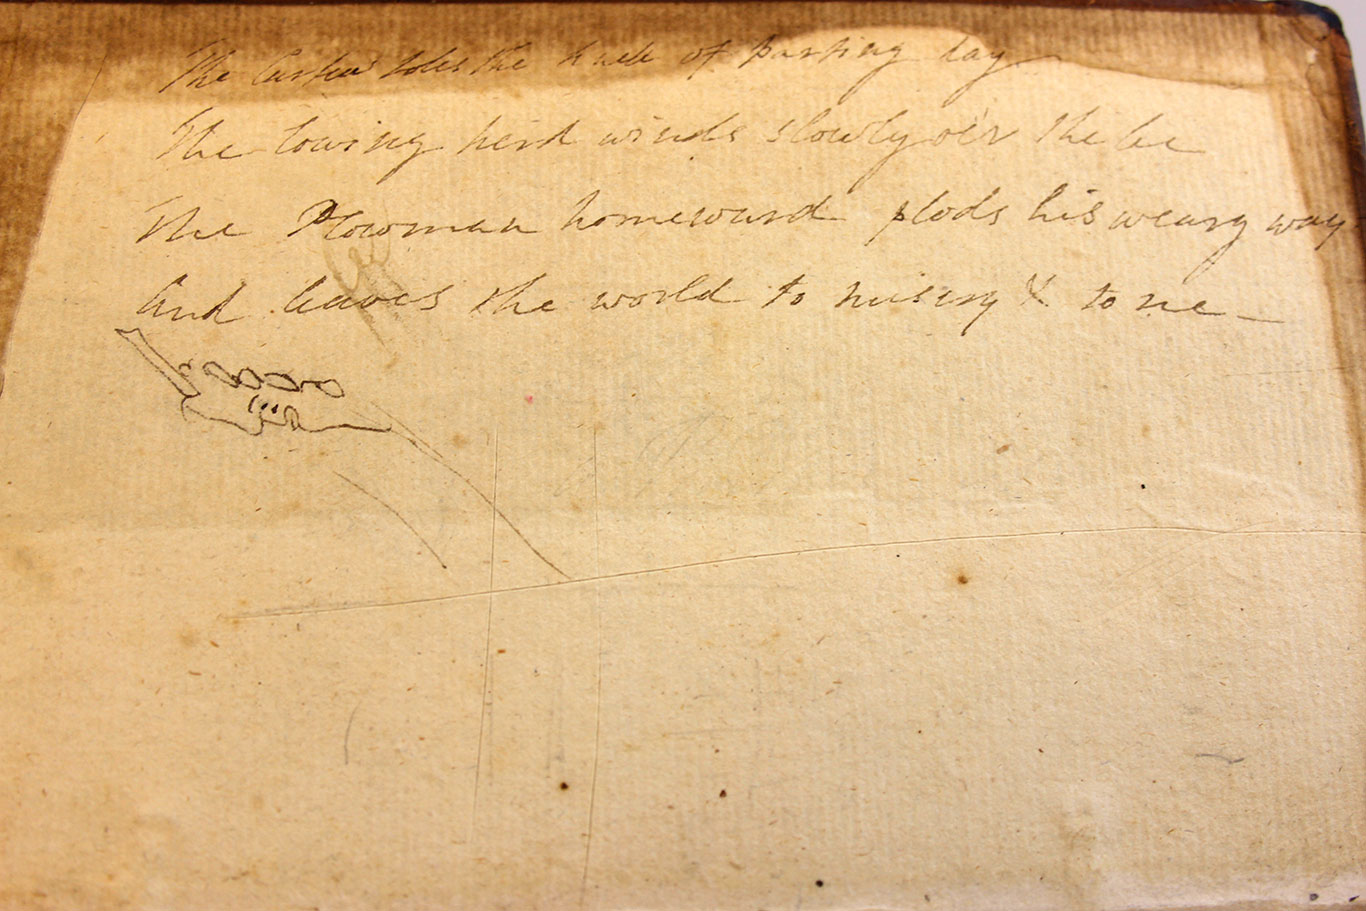 The Curfew toles the knell of parting day
The lowing herd winds slowly o'er the le
The Plowman homeward plods his weary way
And leaves the world to misery & to me –